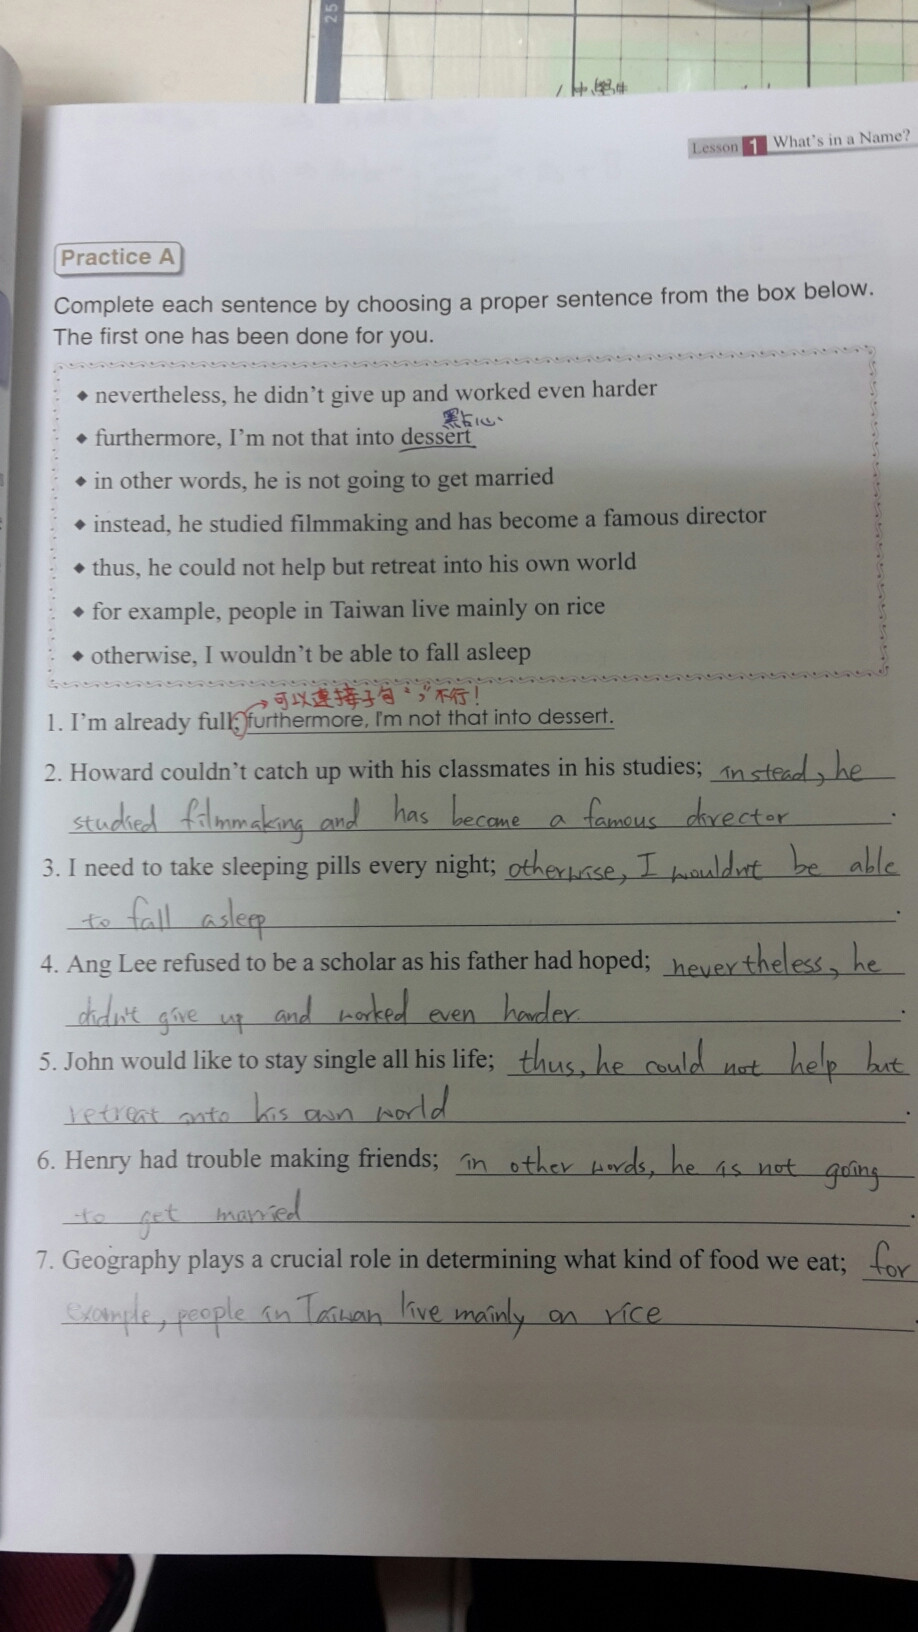 25
Lesson 1 What's in a Name?
Practice A
Complete each sentence by choosing a proper sentence from the box below.
The first one has been done for you.
◆ nevertheless, he didn't give up and worked even harder
點心
◆ furthermore, I'm not that into dessert
◆ in other words, he is not going to get married
◆ instead, he studied filmmaking and has become a famous director
◆ thus, he could not help but retreat into his own world
◆ for example, people in Taiwan live mainly on rice
◆ otherwise, I wouldn't be able to fall asleep
→可以連接子句 "," 不行!
1. I'm already full; furthermore, I'm not that into dessert.
2. Howard couldn't catch up with his classmates in his studies; instead, he
studied filmmaking and has become a famous director.
3. I need to take sleeping pills every night; otherwise, I wouldn't be able
to fall asleep.
4. Ang Lee refused to be a scholar as his father had hoped; nevertheless, he
didn't give up and worked even harder.
5. John would like to stay single all his life; thus, he could not help but
retreat into his own world.
6. Henry had trouble making friends; in other words, he is not going
to get married.
7. Geography plays a crucial role in determining what kind of food we eat; for
example, people in Taiwan live mainly on rice.